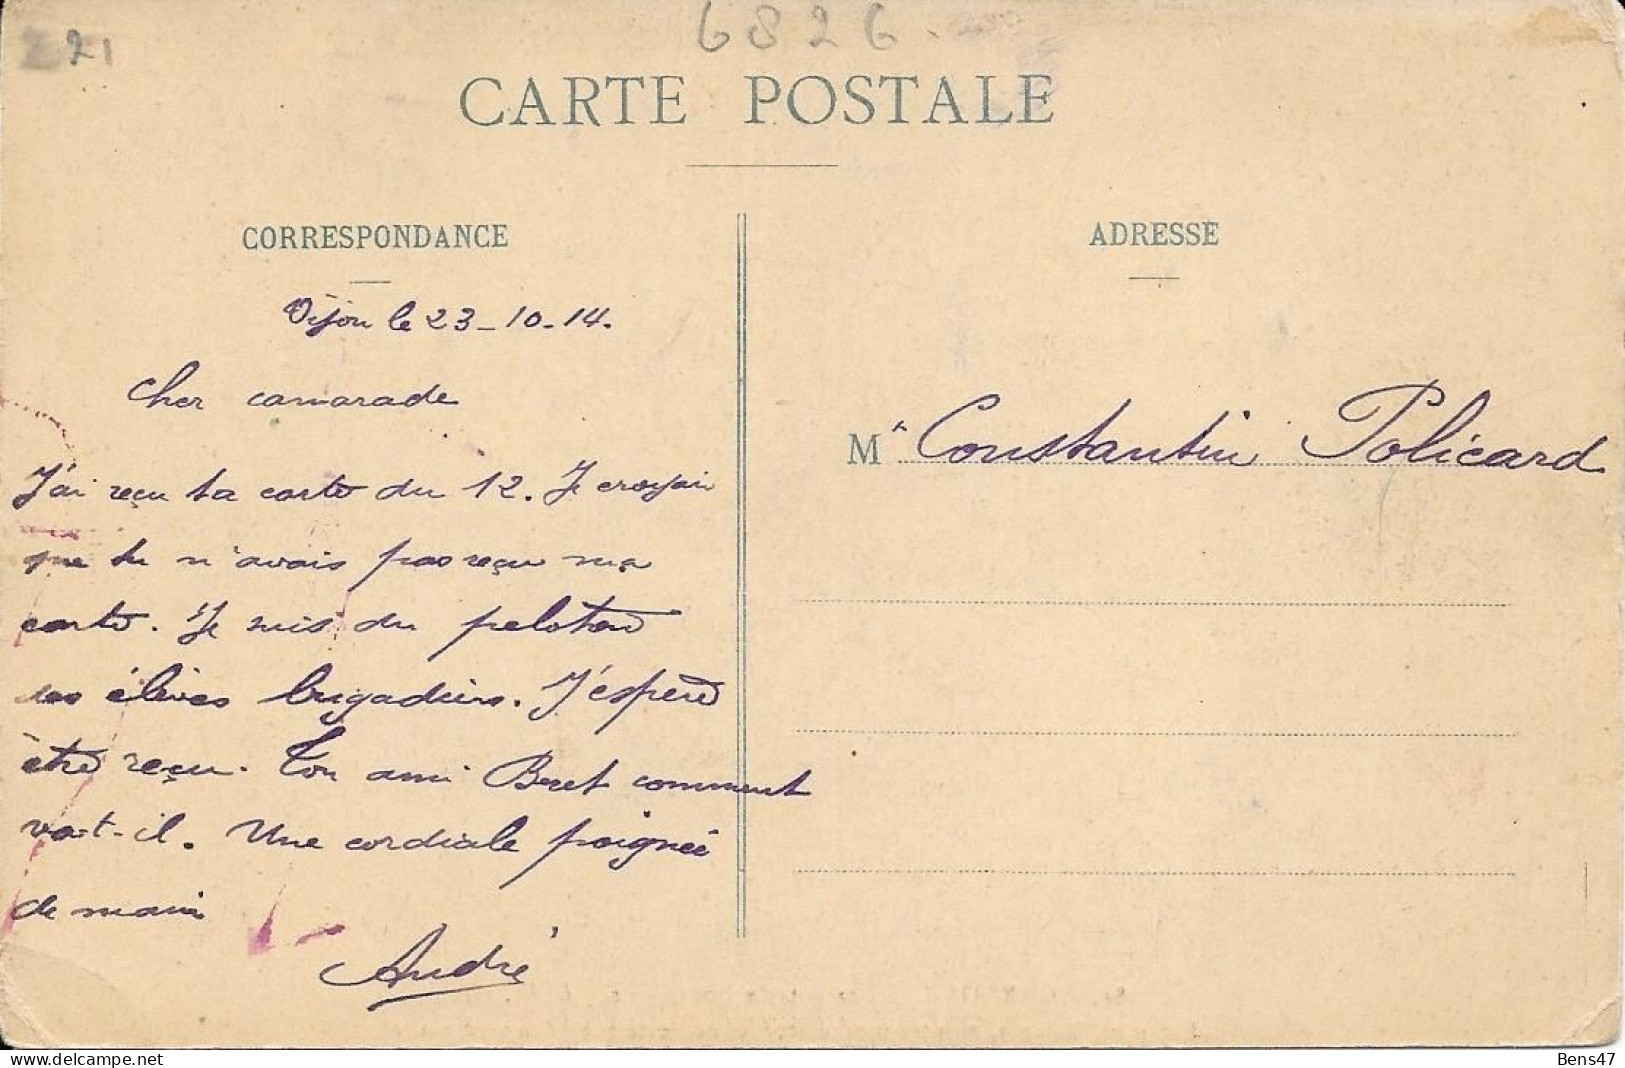 21
6826.
CARTE POSTALE
CORRESPONDANCE
Dijon le 23-10-14.
Cher camarade
J'ai reçu ta carte du 12. Je croyais
que tu n'avais pas reçu ma
carte. Je suis du peloton
des élèves brigadiers. J'espère
être reçu. Ton ami Beret comment
va-t-il. Une cordiale poignée
de main
André
ADRESSE
Mr Constantin Policard
Bens47